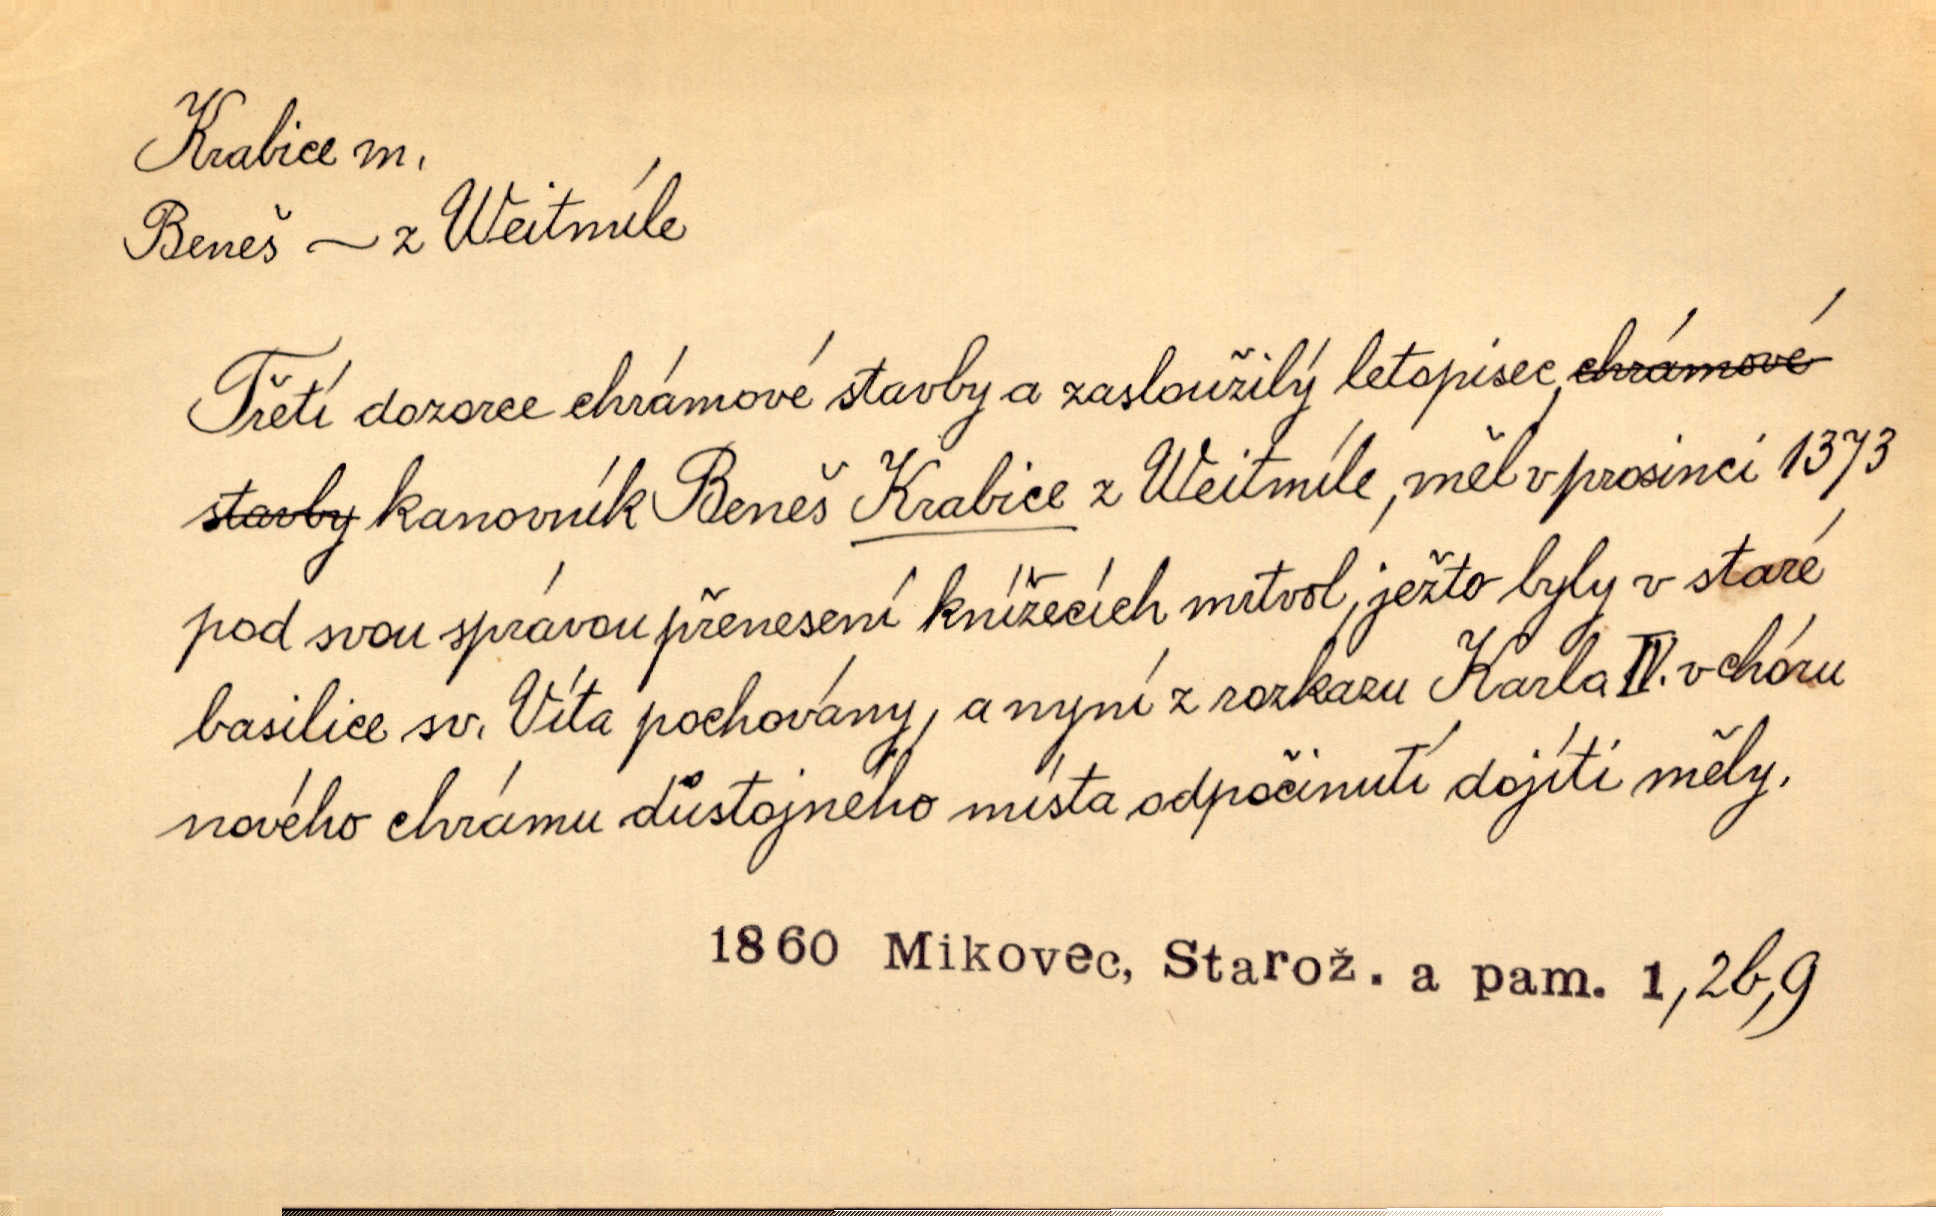 Krabice m.
Beneš ~ z Weitmíle
Třetí dozorce chrámové stavby a zasloužilý letopisec, ~~chrámové~~
~~stavby~~ kanovník Beneš Krabice z Weitmíle, měl v prosinci 1373
pod svou správou přenesení knížecích mrtvol, ježto byly v staré
basilice sv. Víta pochovány, a nyní z rozkazu Karla IV. v chóru
nového chrámu důstojného místa odpočinutí dojíti měly.
1860 Mikovec, Starož. a pam. 1, 2b, 9